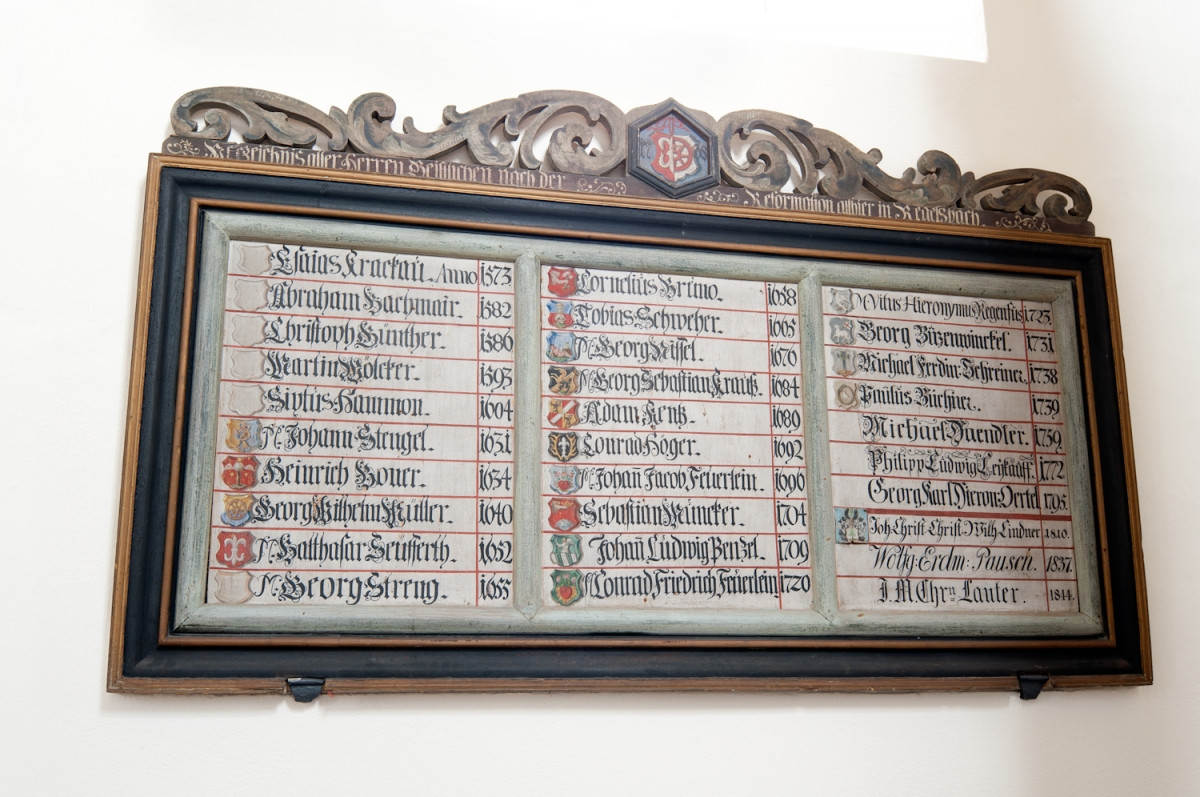 Verzeichnis aller Herren Geistlichen nach der
Reformation allhier in Redelsbach.
Esaias Krackau. Anno 1573
Abraham Hachmair. 1582
Christoph Günther. 1586
Martin Völcker. 1593
Sixtus Hammon. 1604
M. Johann Stengel. 1631
Heinrich Boner. 1634
Georg Wilhelm Müller. 1640
M. Balthasar Seufferth. 1652
M. Georg Streng. 1655
Cornelius Bruno. 1658
Tobias Schweher. 1665
M. Georg Nissel. 1676
M. Georg Sebastian Krauß. 1684
Adam Rentz. 1689
Conrad Höger. 1692
M. Johañ Jacob Feuerlein. 1696
Sebastian Müncker. 1704
Johañ Ludwig Penzel. 1709
Conrad Friedrich Feuerlein 1720
M. Vitus Hieronymus Regenfus 1723.
Georg Bizenwinckel. 1731.
Michael Ferdin: Schreiner. 1738
Paulus Büchner. 1739
Michael Daendler. 1739.
Philipp Ludwig 1772
Georg Karl Hieron: Oertel 1795.
Joh. Christ. Christ. Wilh. Lindner. 1810.
Wolfg. Erdm: Pausch. 1837.
J. M. Chrn Lauter. 1844.